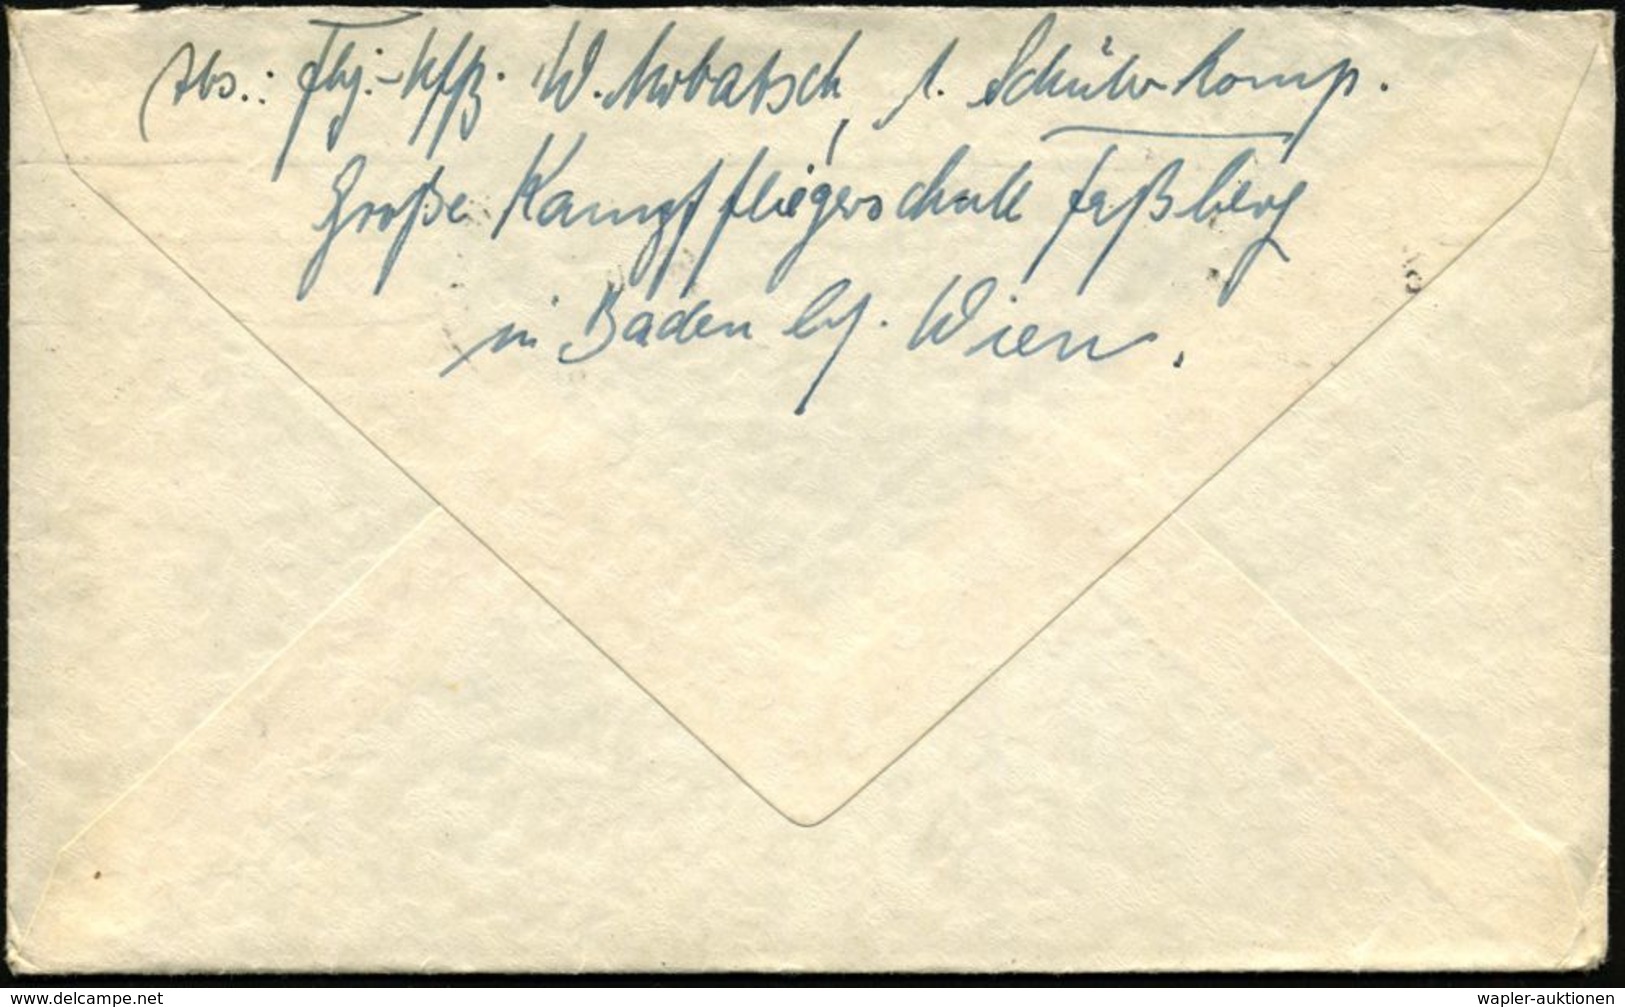 Abs.: Fhj.-Uffz. W. , 1. Schülerkomp.
Große Kampffliegerschule Faßberg
in Baden bei Wien.
www.delcampe.net
wapler-auktionen